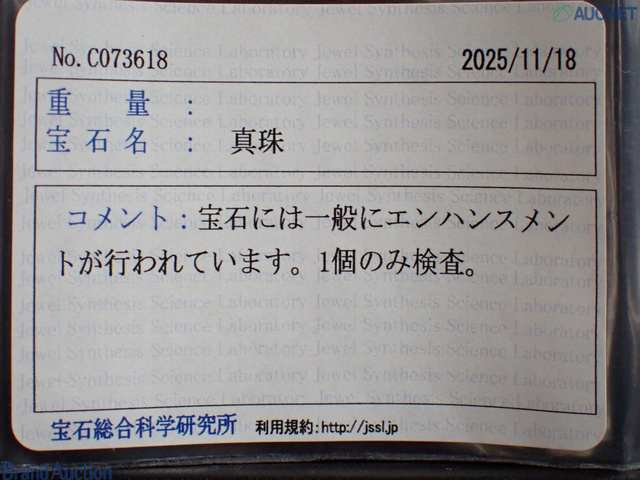 AUCNET
No.C073618 2025/11/18
重量：
宝石名： 真珠
コメント：宝石には一般にエンハンスメン
トが行われています。1個のみ検査。
Jewel Synthesis Science Laboratory
宝石総合科学研究所 利用規約:http://jssl.jp
Brand Auction